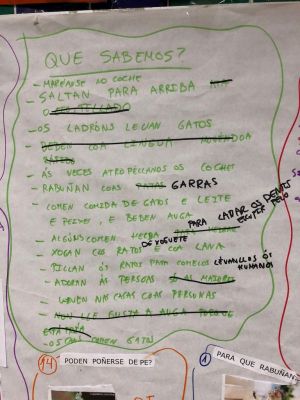 QUE SABEMOS?
- MAREANSE NO COCHE
- SALTAN PARA ARRIBA
O TELLADO
- OS LADRÓNS LEVAN GATOS
- BEBEN COA LINGUA
- ÁS VECES ATROPÉLLANOS OS COCHES
- RABUÑAN COAS PATAS GARRAS
- COMEN COMIDA DE GATOS E LEITE
E PEIXE, E BEBEN AUGA
- ALGÚNS COMEN HERBA PARA LAVAR OS DENTES
ESCUPIR PELO
- XOGAN COS RATOS DE XOGUETE E COA LANA
- PILLAN ÓS RATOS PARA COMELOS LEVANLLOS ÓS HUMANOS
- ADORAN ÁS PERSOAS SÓ AS MAIORES
- VIVEN NAS CASAS COAS PERSOAS
- NON LLE GUSTA A AUGA PORQUE
ESTÁ FRÍA
- OS CANS COMEN GATOS
14 PODEN POÑERSE DE PE?
1 PARA QUE RABUÑAN